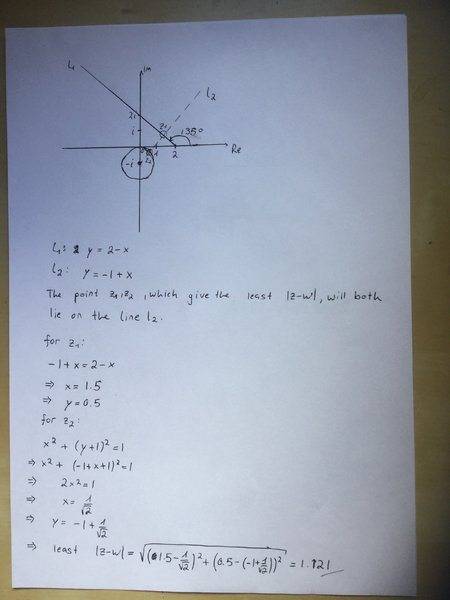 Im
L₁
L₂
2i
i
z₁
135°
1
2
Re
z₂
-i
L₁: y = 2-x
L₂: y = -1+x
The point z₁,z₂, which give the least |z-w|, will both
lie on the line L₂.
for z₁:
-1+x = 2-x
⇒ x = 1.5
⇒ y = 0.5
for z₂:
x² + (y+1)² = 1
⇒ x² + (-1+x+1)² = 1
⇒ 2x² = 1
⇒ x = 1/√2
⇒ y = -1 + 1/√2
⇒ least |z-w| = √((1.5 - 1/√2)² + (0.5 - (-1 + 1/√2))²) = 1.121